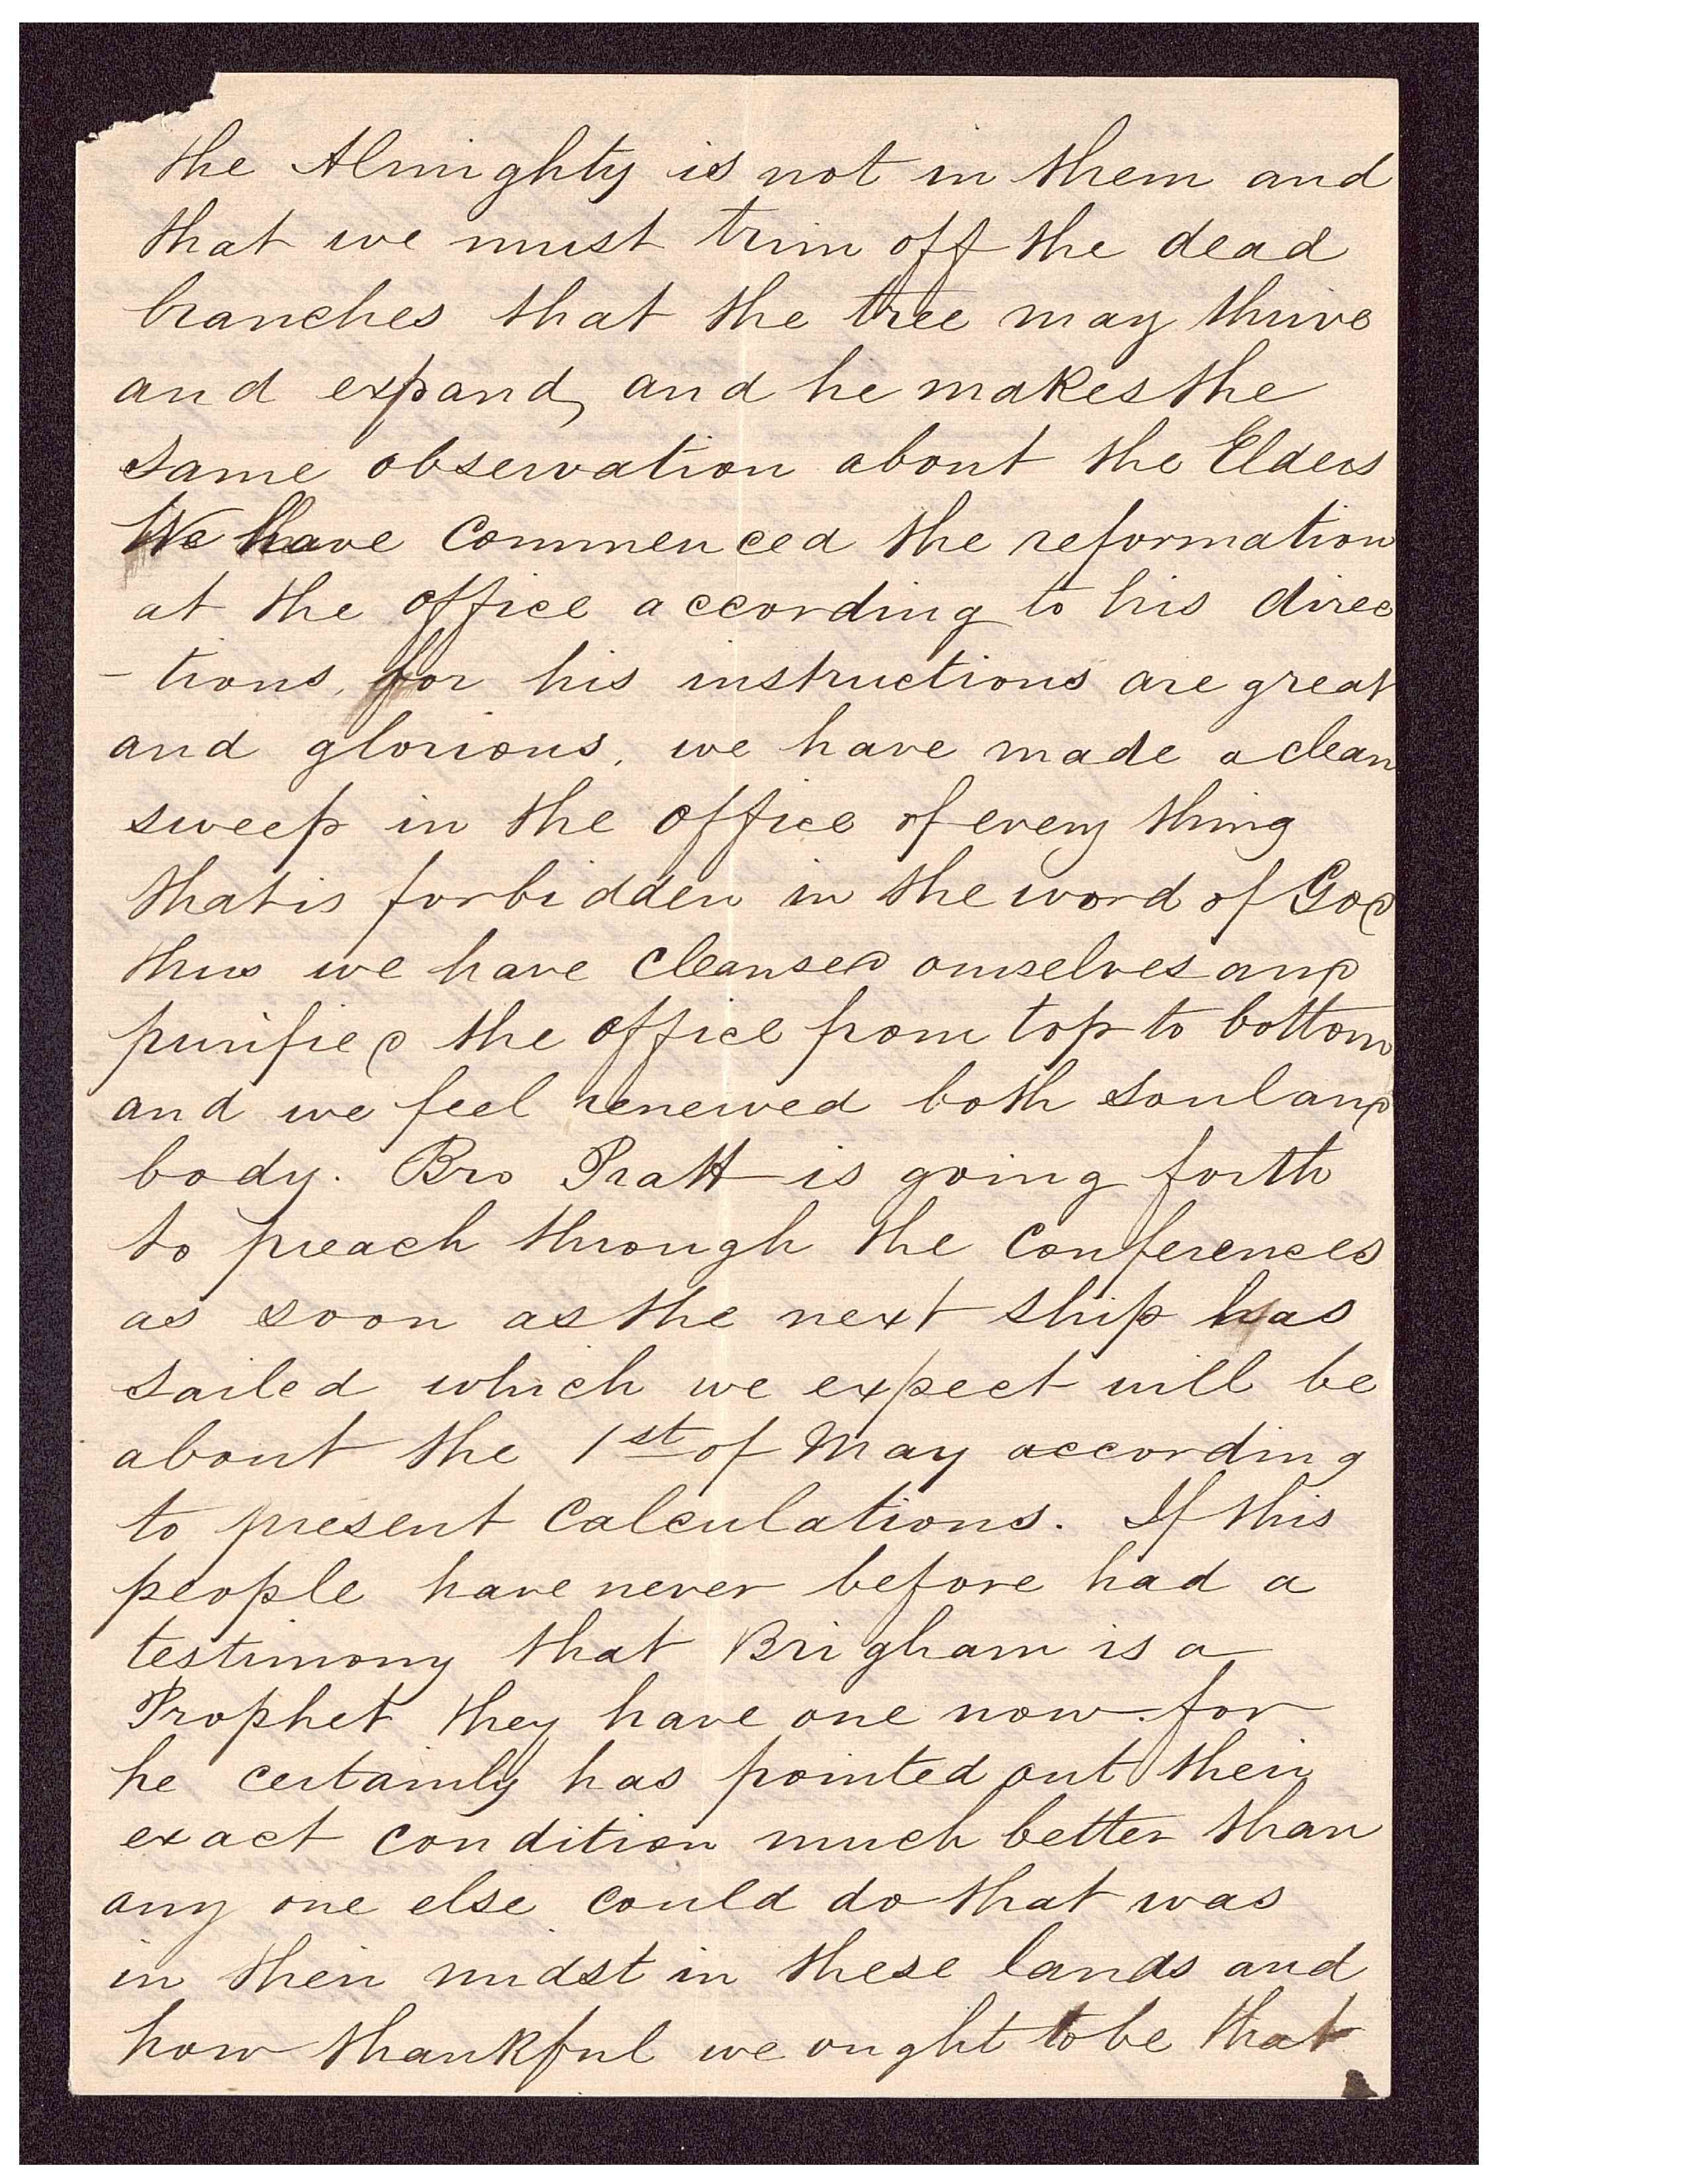 the Almighty is not in them and
that we must trim off the dead
branches that the tree may thrive
and expand, and he makes the
same observation about the Elders
We have commenced the reformation
at the office according to his direc
- tions, for his instructions are great
and glorious, we have made a clean
sweep in the office of every thing
that is forbidden in the word of God
thus we have cleansed ourselves and
purified the office from top to bottom
and we feel renewed both soul and
body. Bro Pratt is going forth
to preach through the conferences
as soon as the next ship has
sailed which we expect will be
about the 1st of May according
to present calculations. If this
people have never before had a
testimony that Brigham is a
Prophet they have one now. for
he certainly has pointed out their
exact condition much better than
any one else could do that was
in their midst in these lands and
how thankful we ought to be that